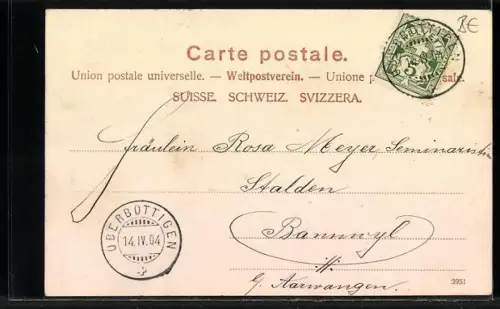 BE
Carte postale.
Union postale universelle. — Weltpostverein. — Unione p sale.
SUISSE. SCHWEIZ. SVIZZERA.
OBERBOTTIGEN
5
Fräulein Rosa Meyer Seminaristin
Stalden
Bannwyl
b/ Aarwangen.
OBERBOTTIGEN
14.IV.04
5951